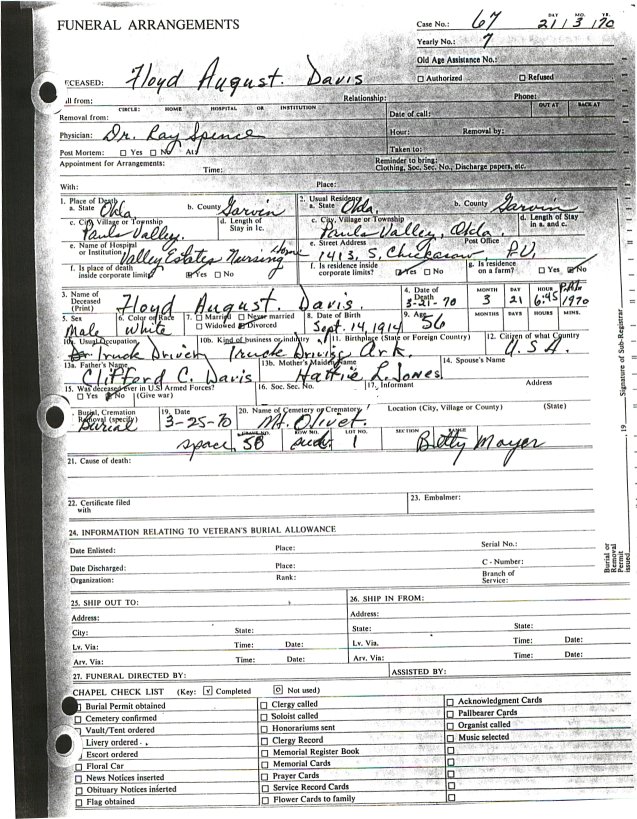 FUNERAL ARRANGEMENTS
Case No.: 67 DAY MO. YR. 21 3 70
Yearly No.: 7
Old Age Assistance No.:
Authorized Refused
ECEASED: Floyd August. Davis
ll from: Relationship: Phone:
CIRCLE: HOME HOSPITAL OR INSTITUTION OUT AT BACK AT
Removal from: Date of call:
Physician: Dr. Ray Spence Hour: Removal by:
Post Mortem: Yes No At: Taken to:
Appointment for Arrangements: Time: Reminder to bring:
Clothing, Soc. Sec. No., Discharge papers, etc.
With: Place:
1. Place of Death 2. Usual Residence
a. State Okla. b. County Garvin a. State Okla. b. County Garvin
c. City, Village or Township d. Length of Stay in 1c. c. City, Village or Township d. Length of Stay in a. and c.
Pauls Valley. Pauls Valley, Okla.
e. Name of Hospital or Institution Valley Estates Nursing Home e. Street Address Post Office
1413. S, Chickasaw P.V.
f. Is place of death inside corporate limits? Yes No f. Is residence inside corporate limits? Yes No g. Is residence on a farm? Yes No
3. Name of Deceased (Print) Floyd August. Davis. 4. Date of Death 3-21-70 MONTH 3 DAY 21 HOUR 6:45 P.M. YEAR 1970
5. Sex Male 6. Color or Race White 7. Married Never married Widowed Divorced 8. Date of Birth Sept. 14, 1914 9. Age 56 MONTHS DAYS HOURS MINS.
10a. Usual Occupation Truck Driver 10b. Kind of business or industry Truck Driving 11. Birthplace (State or Foreign Country) Ark. 12. Citizen of what Country U.S.A.
13a. Father's Name Clifford C. Davis 13b. Mother's Maiden Name Hattie L. Jones 14. Spouse's Name
15. Was deceased ever in U.S. Armed Forces? Yes No (Give war) 16. Soc. Sec. No. 17. Informant Address
Burial, Cremation Removal (specify) Burial 19. Date 3-25-70 20. Name of Cemetery or Crematory Mt. Olivet. Location (City, Village or County) (State)
space 5B ROW NO. LOT NO. 1 SECTION RANGE Betty Mayer
21. Cause of death:
22. Certificate filed with 23. Embalmer:
24. INFORMATION RELATING TO VETERAN'S BURIAL ALLOWANCE
Date Enlisted: Place: Serial No.:
Date Discharged: Place: C - Number:
Organization: Rank: Branch of Service:
25. SHIP OUT TO: 26. SHIP IN FROM:
Address: Address:
City: State: State:
Lv. Via: Time: Date: Lv. Via. Time: Date:
Arv. Via: Time: Date: Arv. Via: Time: Date:
27. FUNERAL DIRECTED BY: ASSISTED BY:
CHAPEL CHECK LIST (Key: Completed Not used)
Burial Permit obtained Clergy called Acknowledgment Cards
Cemetery confirmed Soloist called Pallbearer Cards
Vault/Tent ordered Honorariums sent Organist called
Livery ordered Clergy Record Music selected
Escort ordered Memorial Register Book
Floral Car Memorial Cards
News Notices inserted Prayer Cards
Obituary Notices inserted Service Record Cards
Flag obtained Flower Cards to family
Signature of Sub-Registrar
19
Burial or Removal Permit issued